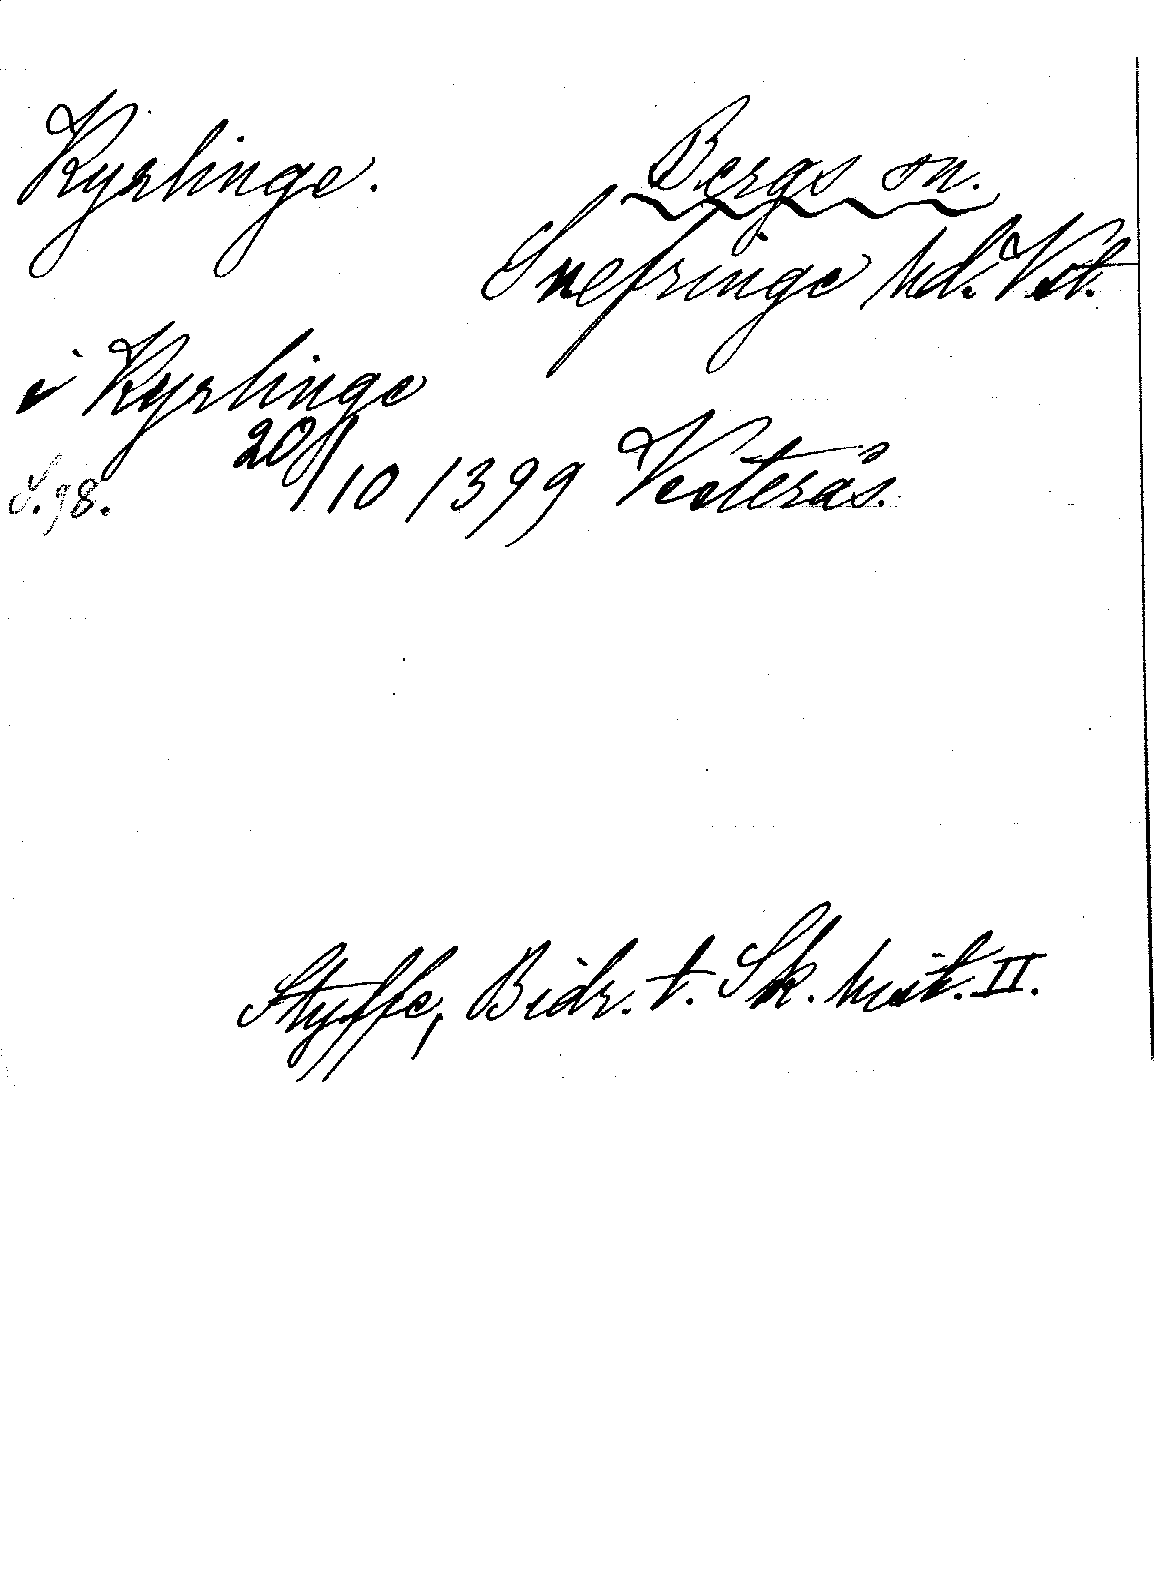 Kyrlinge. Bergs sn.
Snefringe hd. Vst.
i Kyrlinge
S. 98. 20/10 1399 Vesterås.
Styffe, Bidr. t. Sk. hist. II.